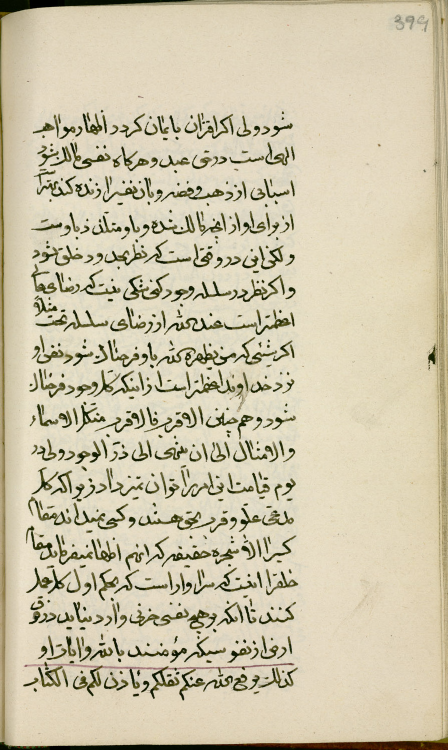 399
شود ولی اگر اقتران بایمان گردد اظهار مواهب
الهی است در حق عبد و هر گاه نفسی مالک شود
اسبابی از ذهب و فضه و بآن نفسی را زنده کند بهتر است
از برای او از آنچه مالک شده و باو متلذذ باوست
ولکن این در وقتی است که نظر بحدود خلق شود
و اگر نظر در سلسله وجود کنی شکی نیست که رضای
اعظمتر است عند الله از رضای سلسله تحت مثلا
اگر شیئی که من یظهره الله باو فرحناک شود نفس او
نزد خداوند اعظمتر است از اینکه کل وجود فرحناک
شود و هم چنین الاقرب فالاقرب مثل الاسماء
و الامثال الی ان ینتهی الی ذر الوجود ولی در
یوم قیامت این امر را توان تمیز داد زیرا که کل
مدعی علو و قرب بحق هستند و کسی نمیداند مقام
کسی را الا شجره حقیقت که او هم اظهار نمیفرماید مقام
خلق را اینست که سزاوار است که بحکم اول کل عمل
کنند تا آنکه بر هیچ نفسی حزنی وارد نیاید در حق
ارض از نفوسیکه مؤمنند بالله و آیات او
کذلک یرفع الله عنکم ثقلکم و یأذن لکم فی الکتاب